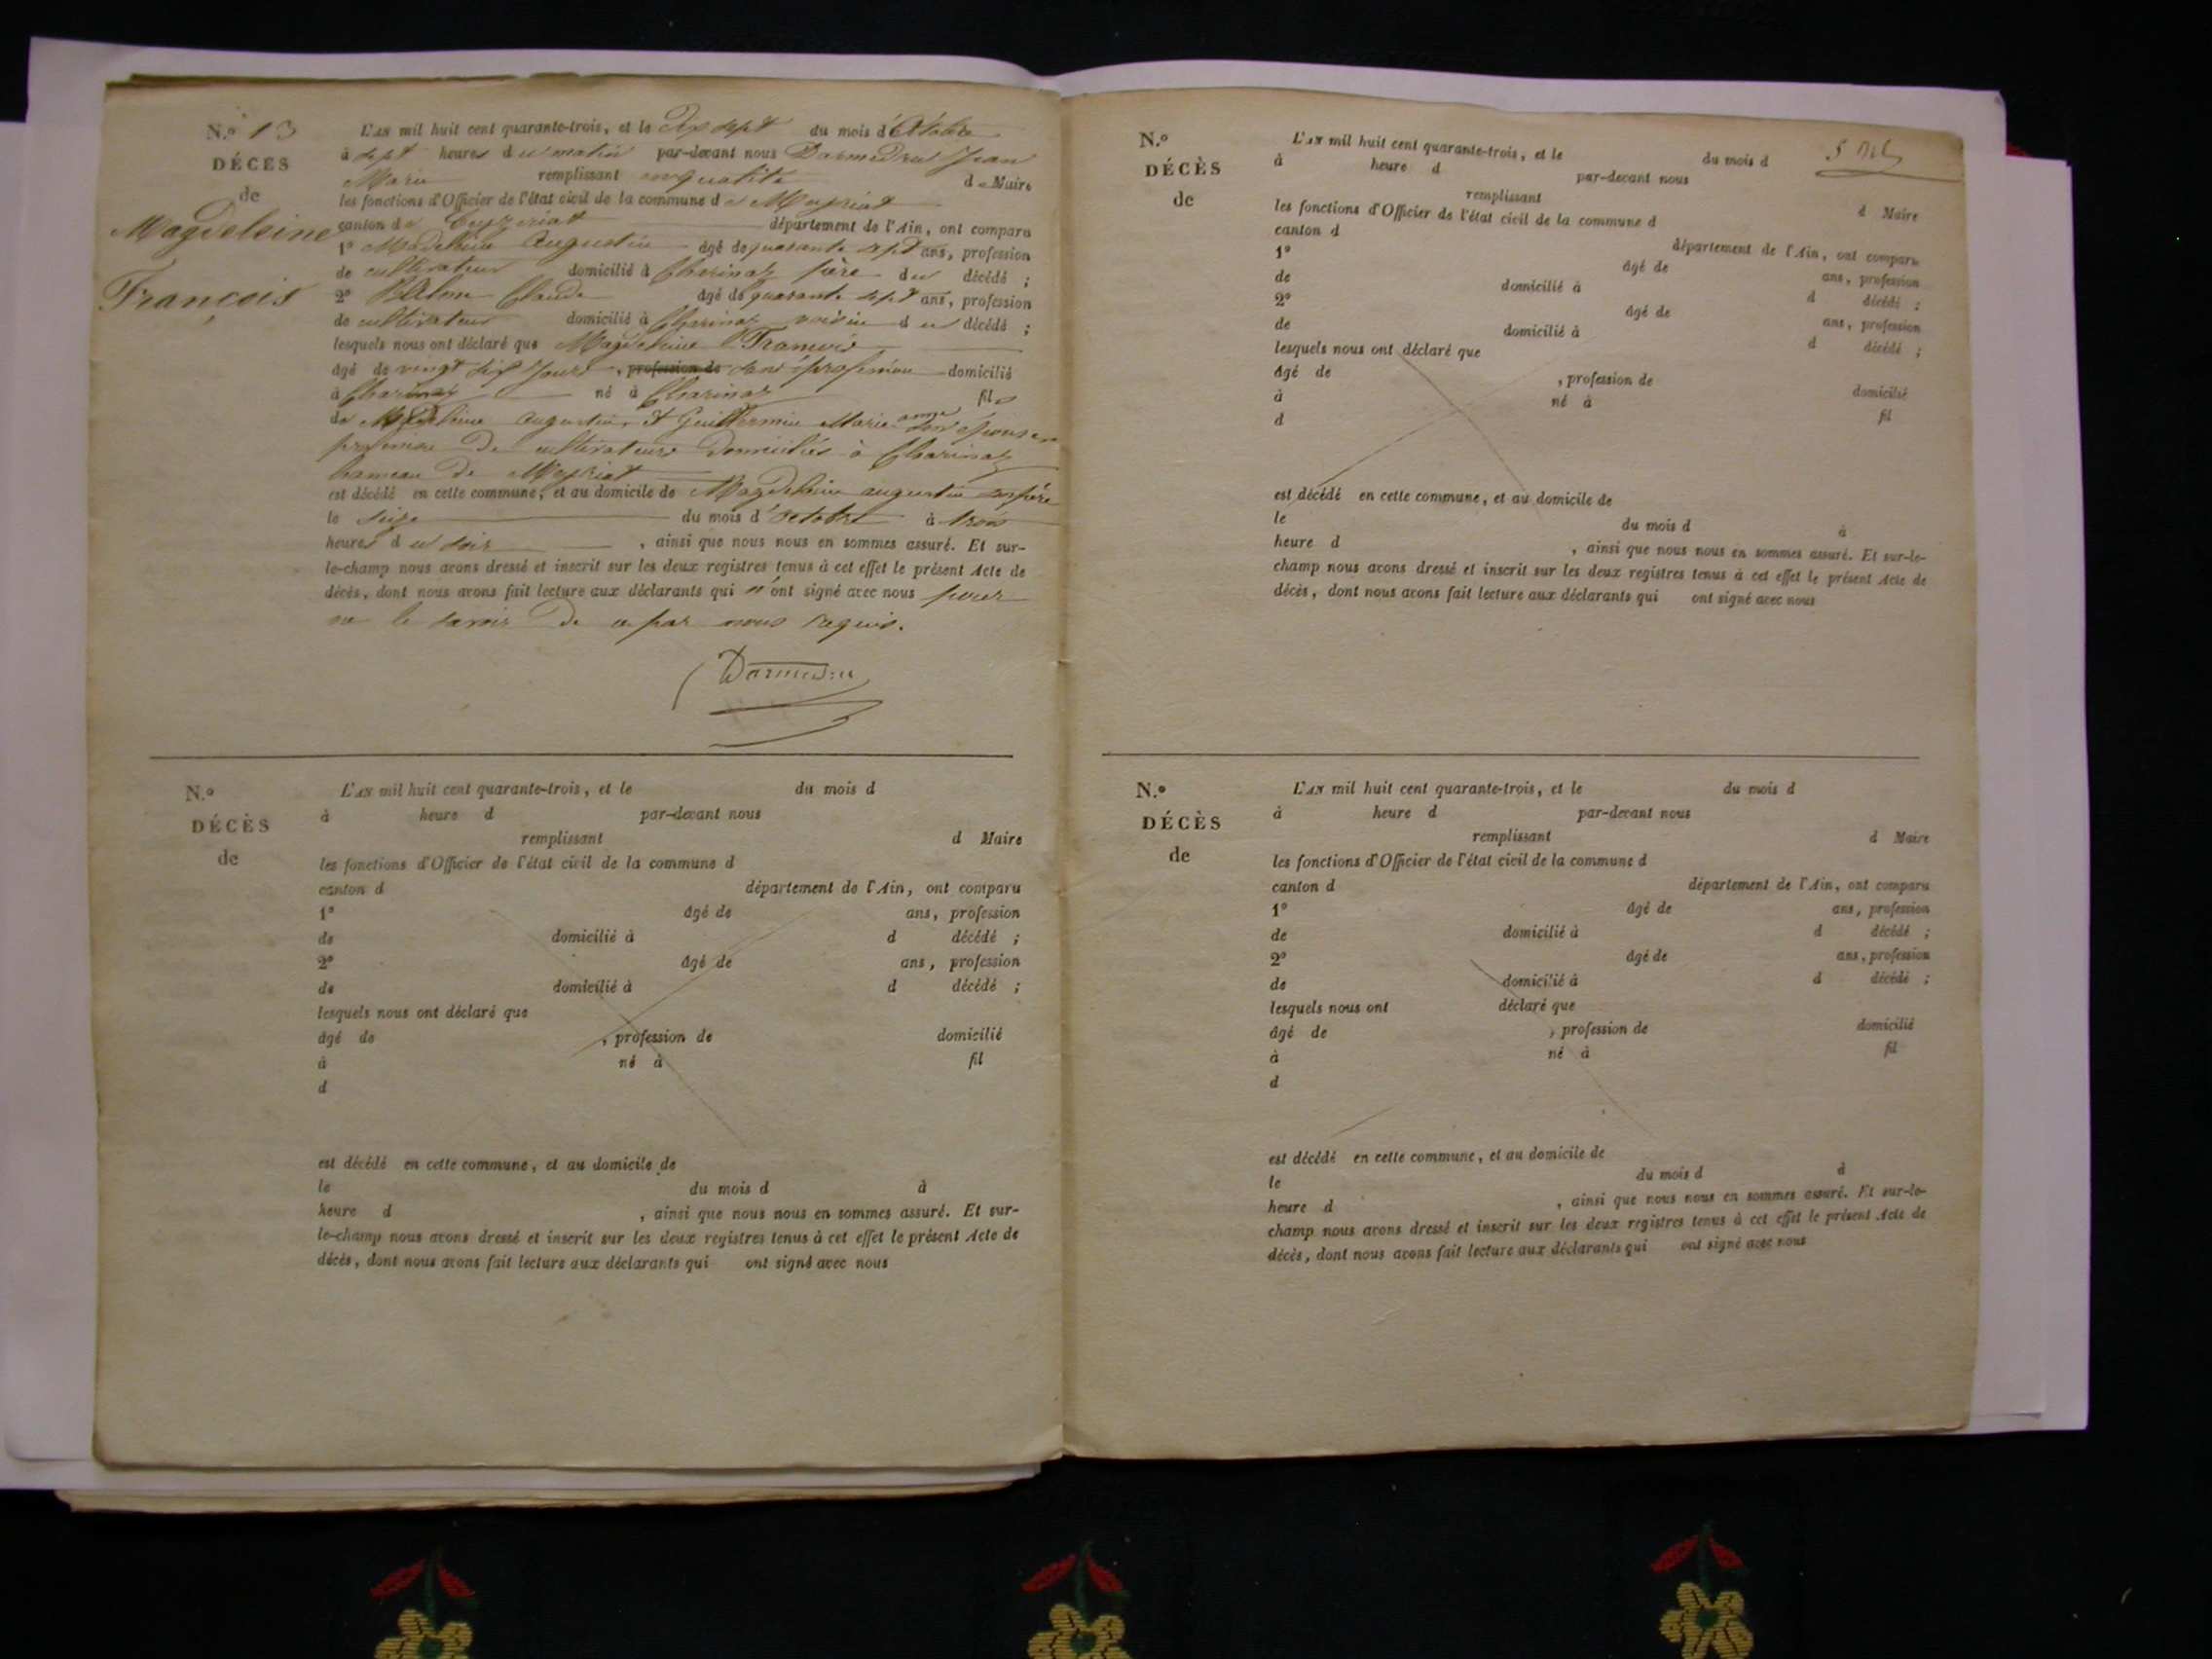 N.º 13
DÉCES
de
Magdeleine
François
L'AN mil huit cent quarante-trois, et le dix sept du mois d'Octobre
à sept heures du matin par-devant nous Darmedru Jean
Marie remplissant en qualité de Maire
les fonctions d'Officier de l'état civil de la commune de Meyriat
canton de Ceyzeriat département de l'Ain, ont comparu
1º Magdeleine Augustin âgé de quarante sept ans, profession
de cultivateur domicilié à Charinaz père du décédé ;
2º Claude âgé de quarante sept ans, profession
de cultivateur domicilié à Charinaz voisin du décédé ;
lesquels nous ont déclaré que Magdeleine François
âgé de vingt jours, profession de sans profession domicilié
à Charinaz né à Charinaz fils
de Magdeleine augustin et Guillermin Marie anne son épouse
profession de cultivateurs domiciliés à Charinaz
hameau de Meyriat
est décédé en cette commune, et au domicile de Magdeleine augustin son père
le seize du mois d'octobre à trois
heures du soir, ainsi que nous nous en sommes assuré. Et sur-
le-champ nous avons dressé et inscrit sur les deux registres tenus à cet effet le présent Acte de
décès, dont nous avons fait lecture aux déclarants qui n'ont signé avec nous pour
ne le savoir de ce par nous requis.
Darmedru
N.º
DÉCÈS
de
L'AN mil huit cent quarante-trois, et le du mois d
à heure d par-devant nous
remplissant d Maire
les fonctions d'Officier de l'état civil de la commune d
canton d département de l'Ain, ont comparu
1º âgé de ans, profession
de domicilié à d décédé ;
2º âgé de ans, profession
de domicilié à d décédé ;
lesquels nous ont déclaré que
âgé de , profession de domicilié
à né à fil
d
est décédé en cette commune, et au domicile de
le du mois d à
heure d , ainsi que nous nous en sommes assuré. Et sur-
le-champ nous avons dressé et inscrit sur les deux registres tenus à cet effet le présent Acte de
décès, dont nous avons fait lecture aux déclarants qui ont signé avec nous
N.º
DÉCÈS
de
L'AN mil huit cent quarante-trois, et le du mois d
à heure d par-devant nous
remplissant d Maire
les fonctions d'Officier de l'état civil de la commune d
canton d département de l'Ain, ont comparu
1º âgé de ans, profession
de domicilié à d décédé ;
2º âgé de ans, profession
de domicilié à d décédé ;
lesquels nous ont déclaré que
âgé de , profession de domicilié
à né à fil
d
est décédé en cette commune, et au domicile de
le du mois d à
heure d , ainsi que nous nous en sommes assuré. Et sur-le-
champ nous avons dressé et inscrit sur les deux registres tenus à cet effet le présent Acte de
décès, dont nous avons fait lecture aux déclarants qui ont signé avec nous
N.º
DÉCÈS
de
L'AN mil huit cent quarante-trois, et le du mois d
à heure d par-devant nous
remplissant d Maire
les fonctions d'Officier de l'état civil de la commune d
canton d département de l'Ain, ont comparu
1º âgé de ans, profession
de domicilié à d décédé ;
2º âgé de ans, profession
de domicilié à d décédé ;
lesquels nous ont déclaré que
âgé de , profession de domicilié
à né à fil
d
est décédé en cette commune, et au domicile de
le du mois d à
heure d , ainsi que nous nous en sommes assuré. Et sur-le-
champ nous avons dressé et inscrit sur les deux registres tenus à cet effet le présent Acte de
décès, dont nous avons fait lecture aux déclarants qui ont signé avec nous